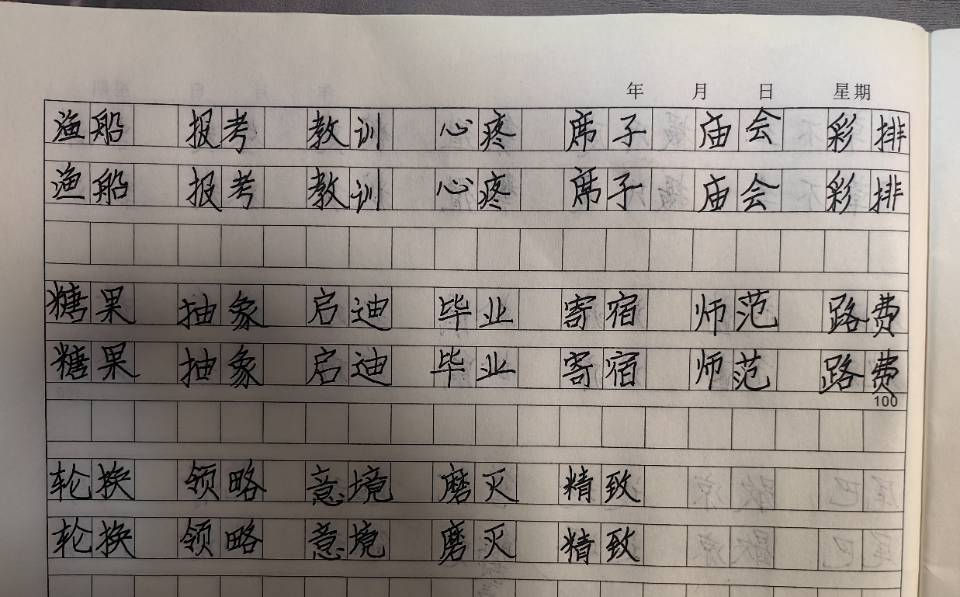 年 月 日 星期
渔船 报考 教训 心疼 席子 庙会 彩排
渔船 报考 教训 心疼 席子 庙会 彩排
糖果 抽象 启迪 毕业 寄宿 师范 路费
糖果 抽象 启迪 毕业 寄宿 师范 路费
100
轮换 领略 意境 磨灭 精致
轮换 领略 意境 磨灭 精致